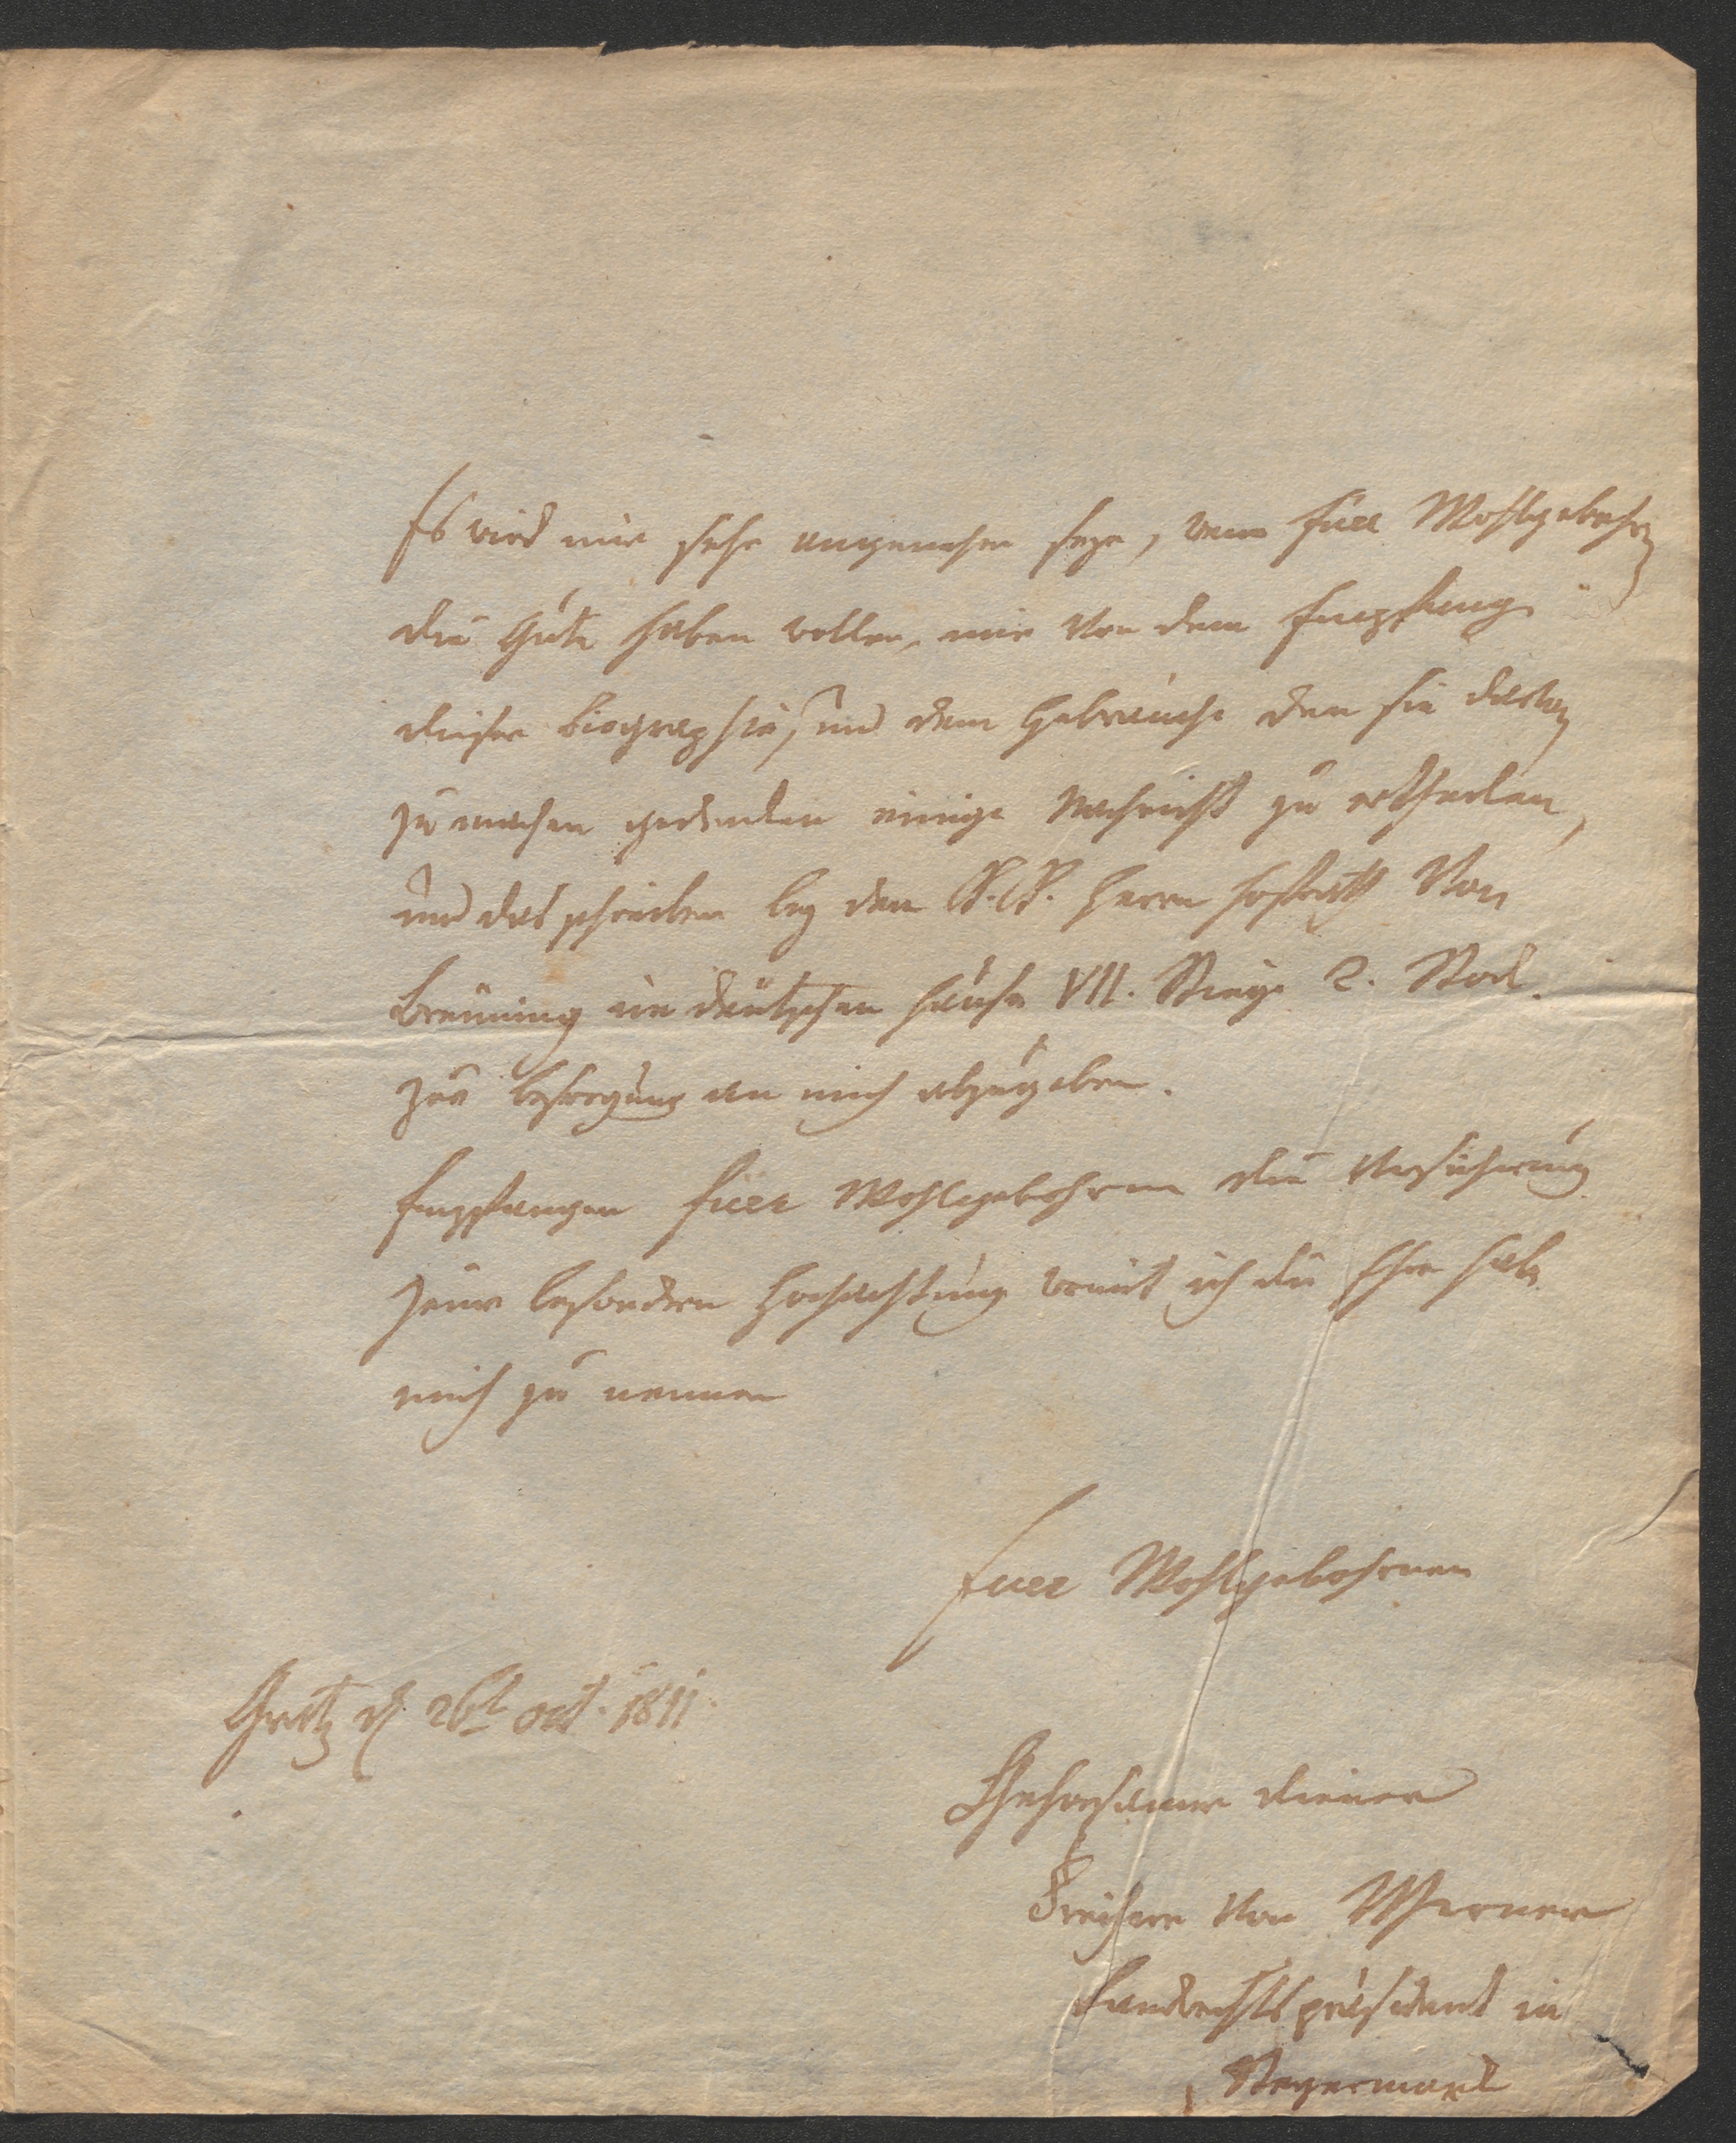 Es wird mir sehr angenehm seyn, wenn Euer Wohlgebohrn
die Güte haben wollen, mir von dem Empfang
dieser Biographie, und dem Gebrauche den sie davon
zu machen gedenken einige Nachricht zu ertheilen,
und das schreiben bey dem K.K. Herrn Hofrath von
Breuning im deutschen Hause VII. Stiege 2. Stock.
zur besorgung an mich abzugeben.
Empfangen Euer Wohlgebohrnen die Versicherung
jener besondern Hochachtung womit ich die Ehre habe
mich zu nennen
Euer Wohlgebohrnen
Gratz d 26t oct. 1811.
Gehorsamer diener
Freiherr von Werner
Landrechts präsident in
Steyermark